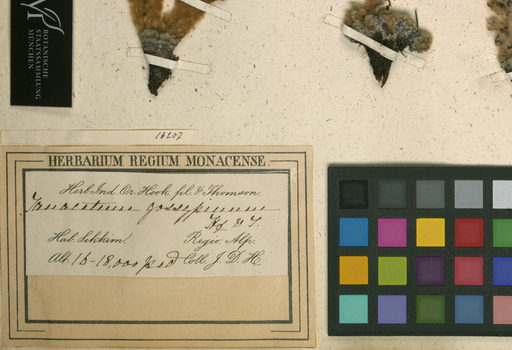 BOTANISCHE
STAATSSAMMLUNG
MÜNCHEN
HERBARIUM REGIUM MONACENSE.
Herb. Ind. Or. Hook. fil. & Thomson.
Tanacetum gossypinum
H.f. & T.
Hab. Sikkim. Regio Alp.
Alt. 16-18,000 ped Coll. J. D. H.